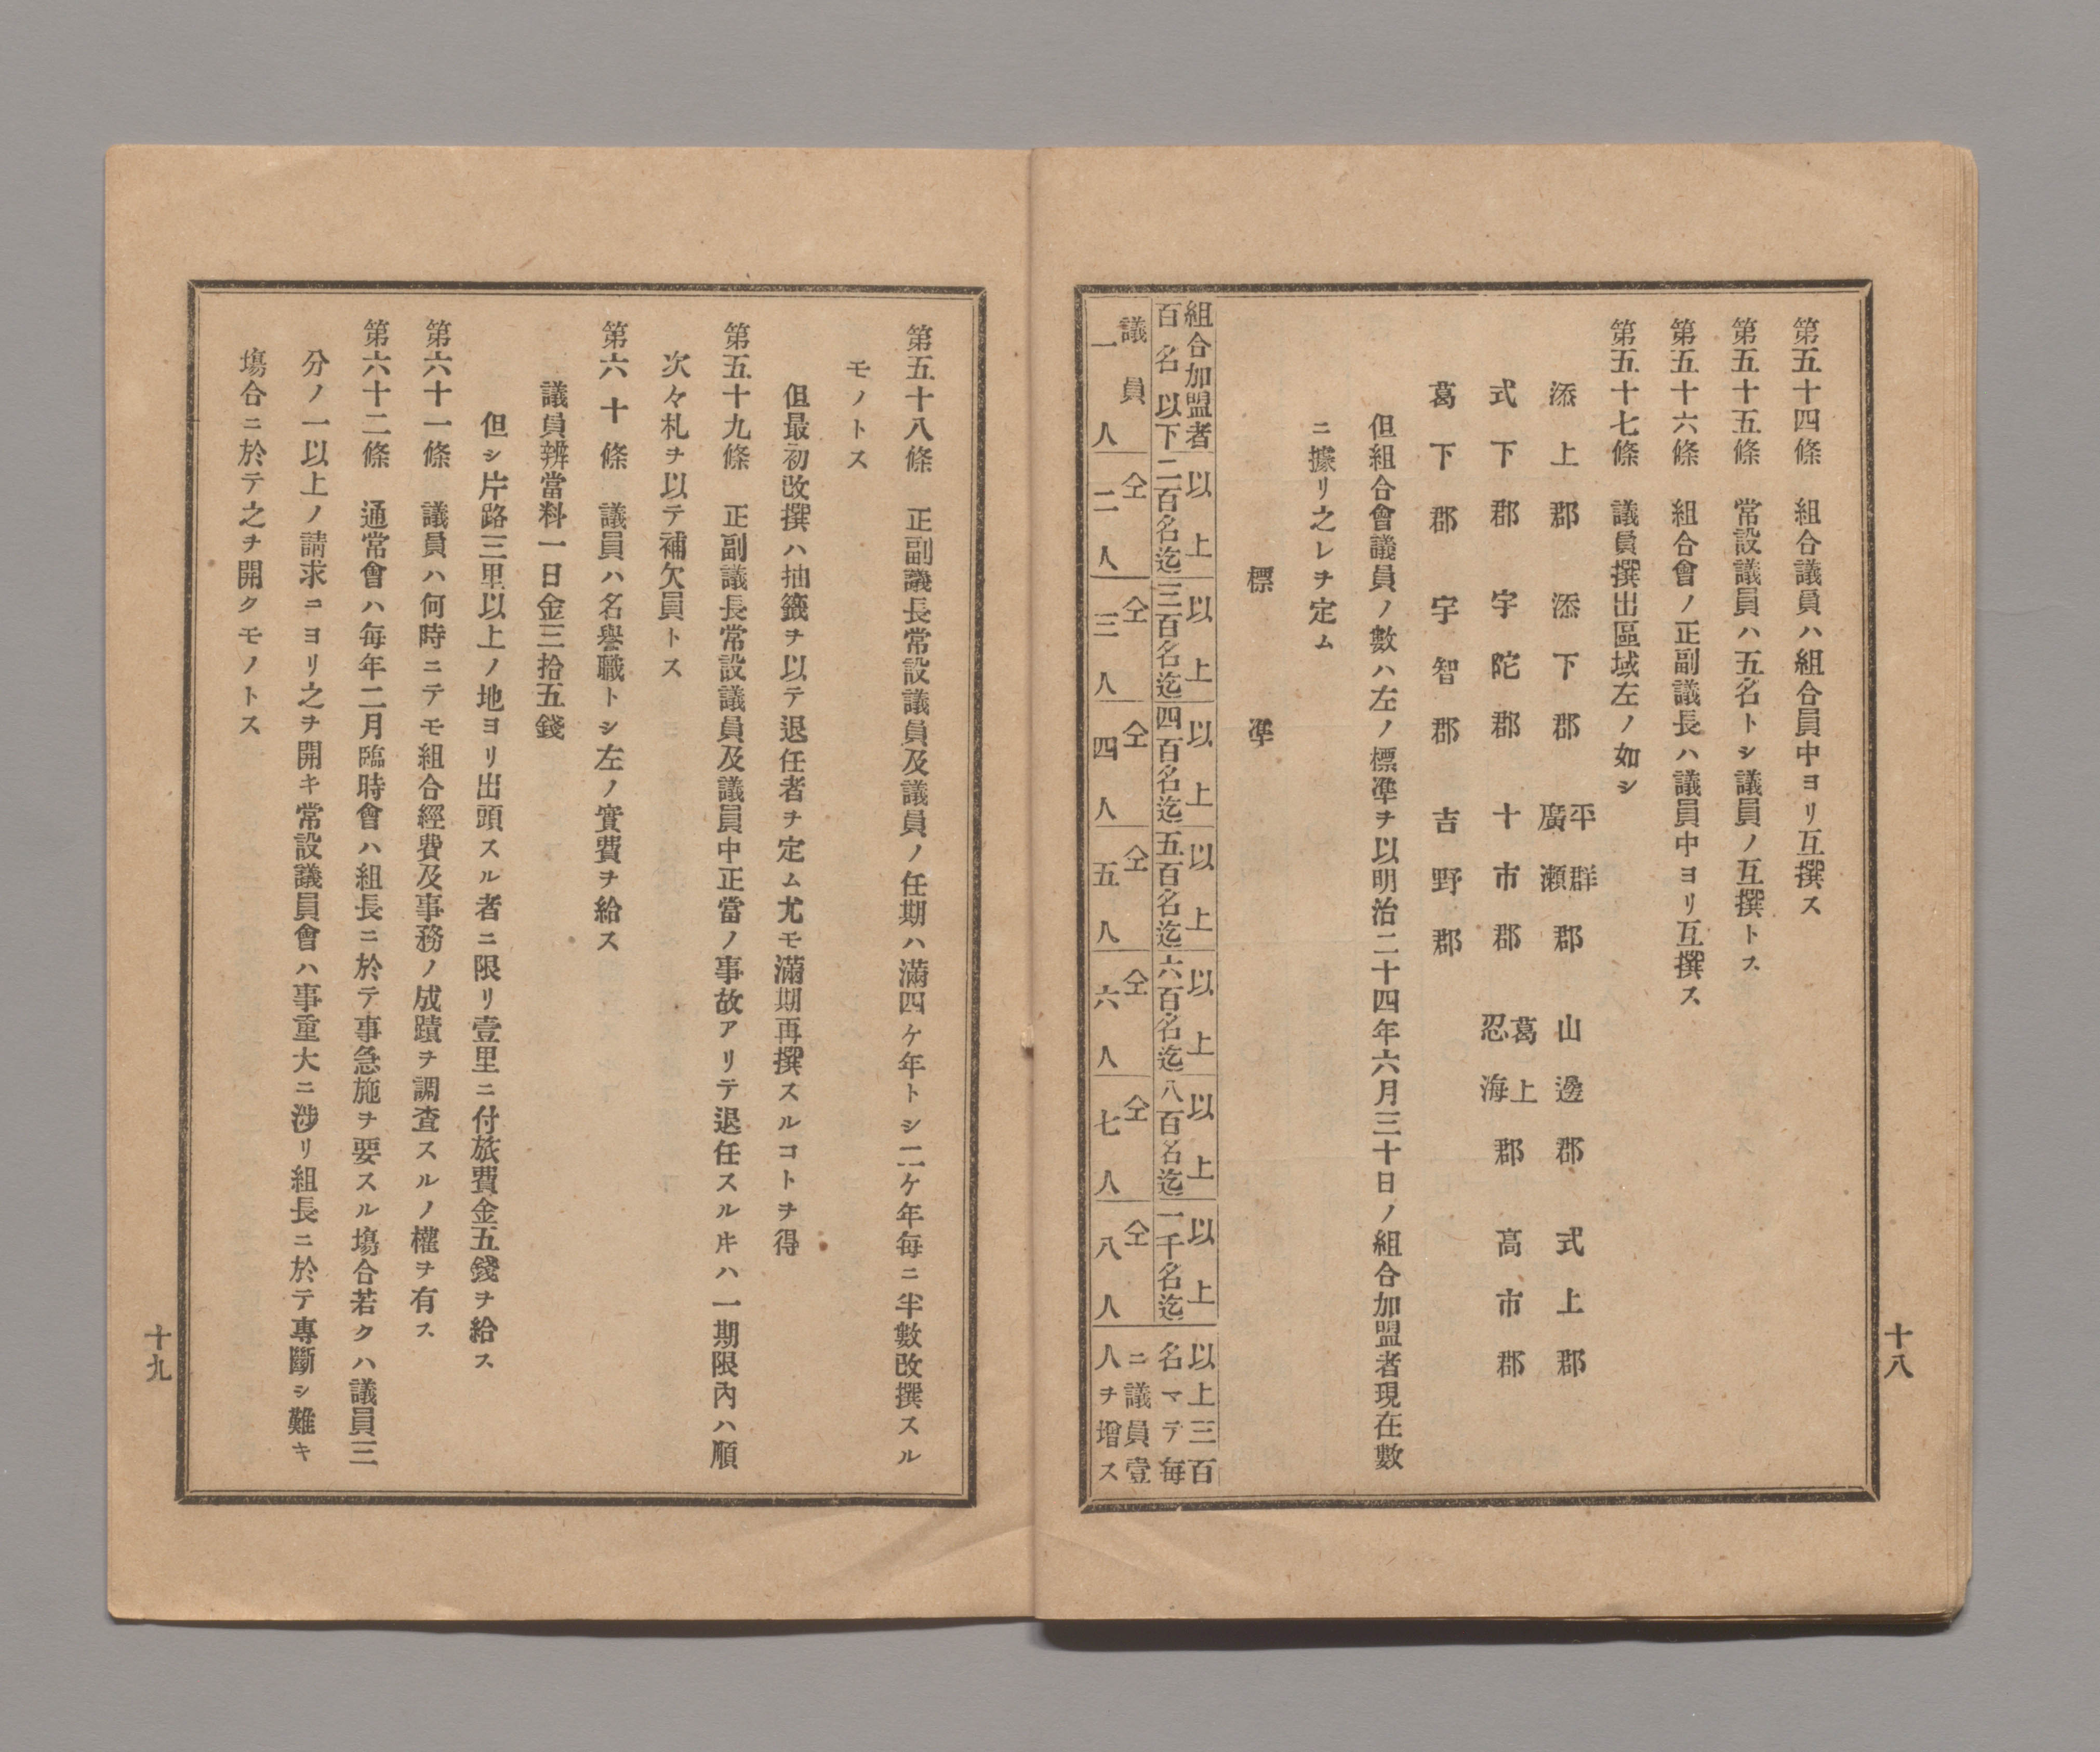 第五十四條　組合議員ハ組合員中ヨリ互撰ス
第五十五條　常設議員ハ五名トシ議員ノ互撰トス
第五十六條　組合會ノ正副議長ハ議員中ヨリ互撰ス
第五十七條　議員撰出區域左ノ如シ
添上郡　添下郡　平群廣瀬郡　山邊郡　式上郡
式下郡　宇陀郡　十市郡　葛上忍海郡　高市郡
葛下郡　宇智郡　吉野郡
但組合會議員ノ數ハ左ノ標準ヲ以明治二十四年六月三十日ノ組合加盟者現在數
ニ據リ之レヲ定ム
標準
組合加盟者百名以下　議員一人
以上二百名迄　仝二人
以上三百名迄　仝三人
以上四百名迄　仝四人
以上五百名迄　仝五人
以上六百名迄　仝六人
以上八百名迄　仝七人
以上一千名迄　仝八人
以上三百名マデ毎ニ議員壹人ヲ增ス
十八
第五十八條　正副議長常設議員及議員ノ任期ハ滿四ケ年トシ二ケ年毎ニ半數改撰スル
モノトス
但最初改撰ハ抽籤ヲ以テ退任者ヲ定ム尤モ滿期再撰スルコトヲ得
第五十九條　正副議長常設議員及議員中正當ノ事故アリテ退任スル𪜈ハ一期限內ハ順
次々札ヲ以テ補欠員トス
第六十條　議員ハ名譽職トシ左ノ實費ヲ給ス
議員辨當料一日金三拾五錢
但シ片路三里以上ノ地ヨリ出頭スル者ニ限リ壹里ニ付旅費金五錢ヲ給ス
第六十一條　議員ハ何時ニテモ組合經費及事務ノ成蹟ヲ調査スルノ權ヲ有ス
第六十二條　通常會ハ毎年二月臨時會ハ組長ニ於テ事急施ヲ要スル塲合若クハ議員三
分ノ一以上ノ請求ニヨリ之ヲ開キ常設議員會ハ事重大ニ涉リ組長ニ於テ專斷シ難キ
塲合ニ於テ之ヲ開クモノトス
十九